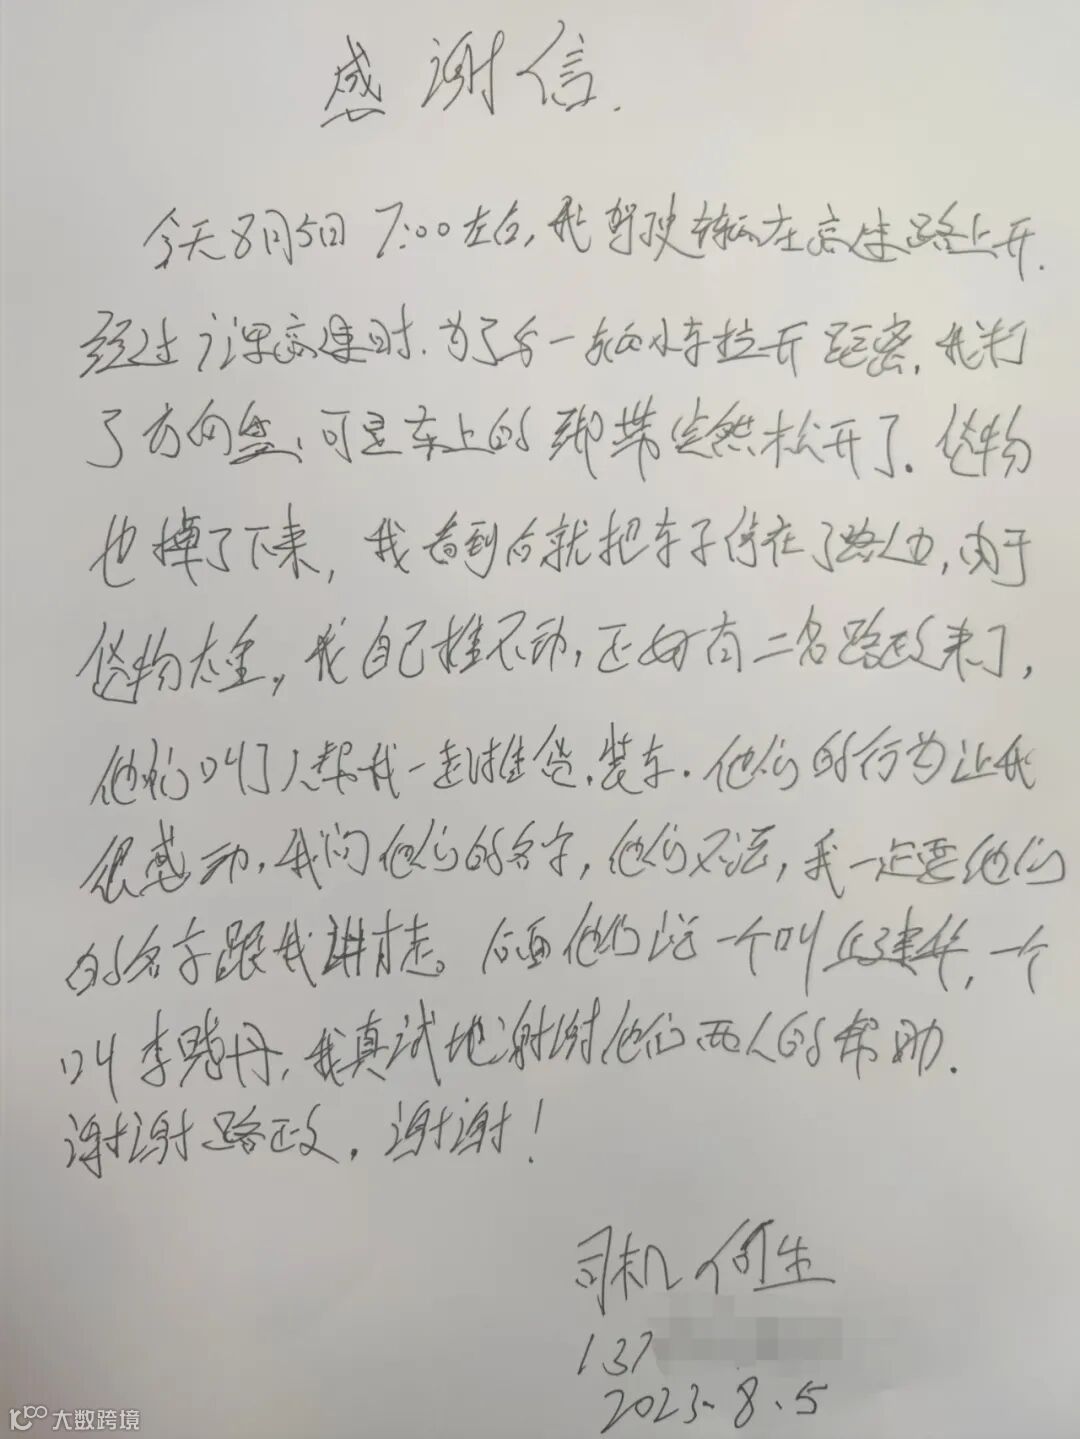 感谢信.
今天8月5日 7:00左右,我驾驶车辆在高速路上开.
经过 高速时.为了与一辆小车拉开距离,我打
了方向盘,可是车上的绑带突然松开了.货物
也掉了下来,我看到后就把车子停在了路边,由于
货物太重,我自己推不动,还好有二名路政来了,
他们叫了人帮我一起推货.装车.他们的行为让我
很感动,我问他们的名字,他们不说,我一定要他们
的名字跟我讲 。后面他们说一个叫 建华,一个
叫李 丹,我真试地谢谢他们两人的帮助.
谢谢路政,谢谢!
司机 何生
137
2023.8.5
大数跨境